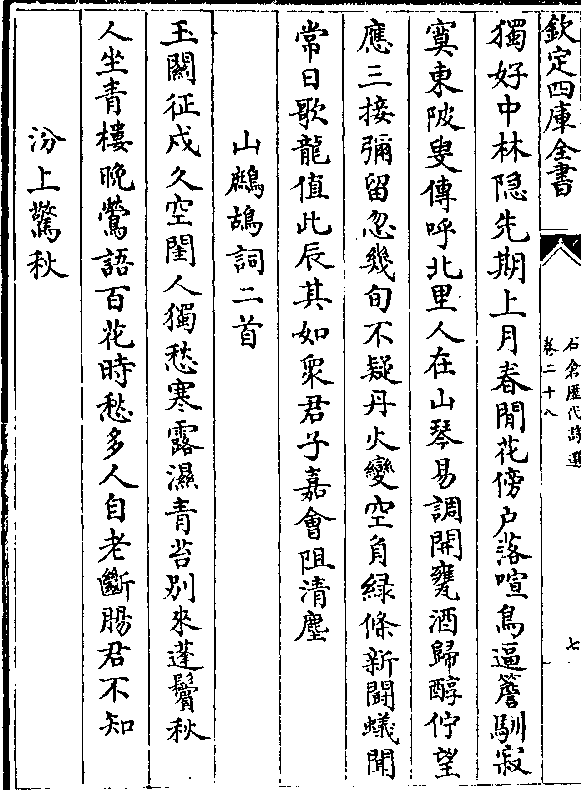 欽定四庫全書
石倉歷代詩選
卷二十八
七
獨好中林隠先期上月春閒花傍户落喧鳥逼簷馴寂
寞東陂叟傳呼北里人在山琴易調開甕酒歸醇佇望
應三接彌留忽幾旬不疑丹火變空負緑條新鬭蟻聞
常日歌龍值此辰其如衆君子嘉會阻清塵
山鷓鴣詞二首
玉關征戍久空閨人獨愁寒露濕青苔别來蓬鬢秋
人坐青樓晩鶯語百花時愁多人自老斷腸君不知
汾上驚秋